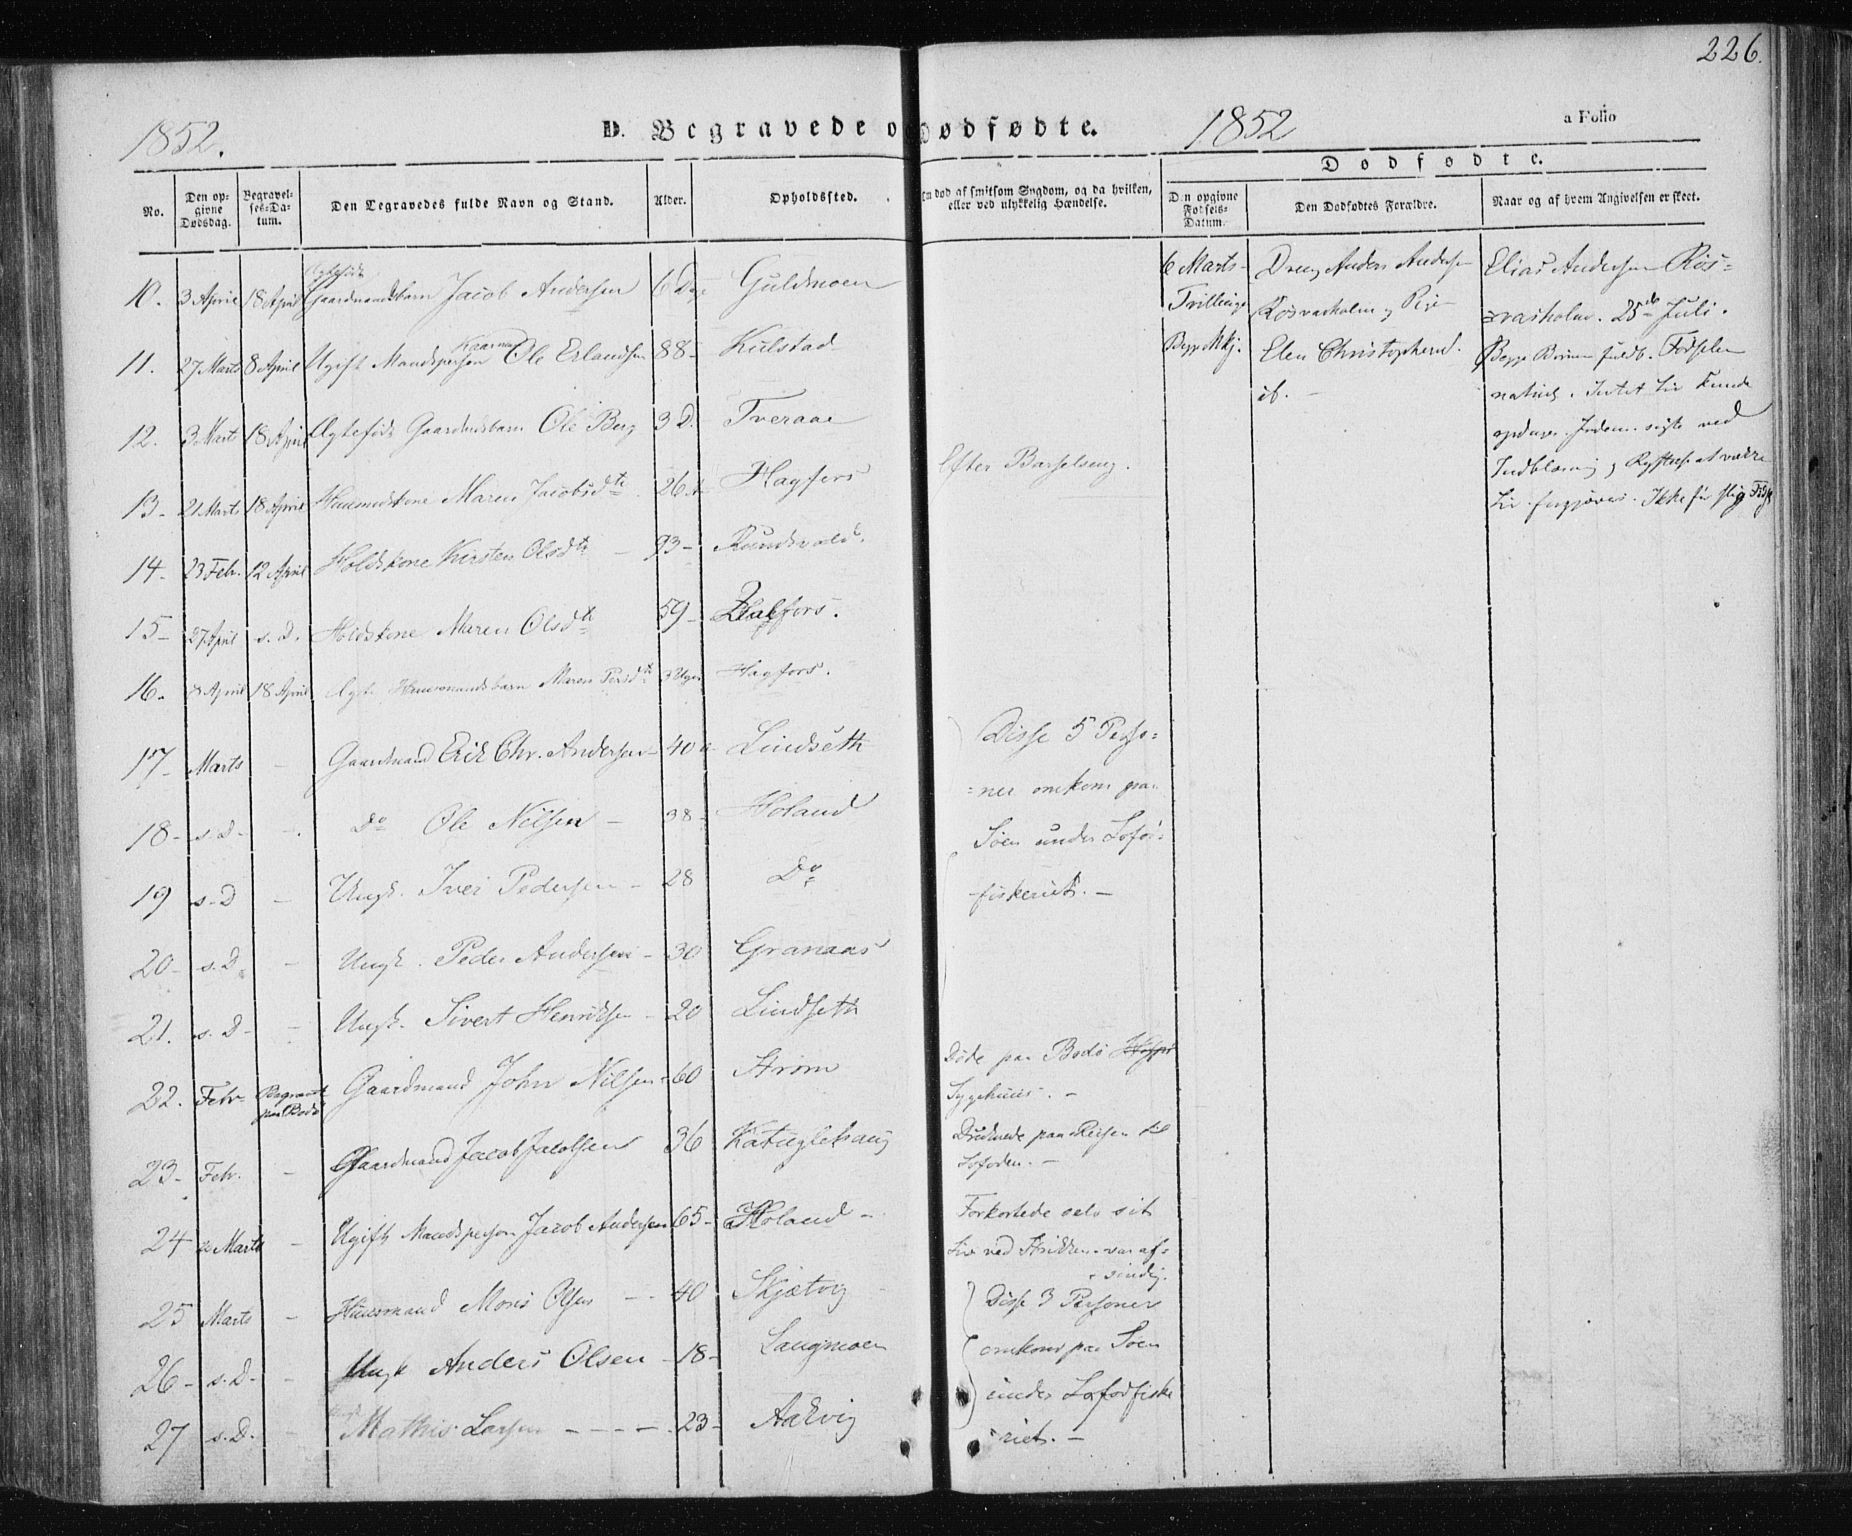 226.
1852. D. Begravede o Dødfødte. 1852 a Folio
Dødfødte.
No. Den opgivne Dødsdag. Begravelses-Datum. Den Begravedes fulde Navn og Stand. Alder. Opholdssted. død af smitsom Sygdom, og da hvilken, eller ved ulykkelig Hændelse. Den opgivne Fødsels-Datum. Den Dødfødtes Forældre. Naar og af hvem Angivelsen er skeet.
10. 3 April 18 April Ægtefødt Gaardmandsbarn Jacob Andersen 6 Dage Guldmoen
11. 27 Marts 8 April Ugift Mandsperson Ole Erlandsen 88 - Kulstad
12. 3 Mart 18 April Ægtefødt Gaardmdsbarn Ole Berg 3 D. Tveraae
13- 21 Marts 18 April Huusmdskone Maren Jacobsdtr 26 Hagfors Efter Barselseng.
14- 23 Febr. 12 April Holdskone Kirsten Olsdtr - 93 - Rundvold.
15- 27 April s. D. Holdskone Maren Olsdtr 59 - Halfors.
16- 8 April 18 April Ægte Huusmandsbarn Maren Persdtr 3 Uger Hagfors.
17- Marts - Gaardmand Erik Chr. Andersen - 40 Lindseth
18- s. D- - Do Ole Nilsen - 38 - Holand
19 s. D - Ungk. Iver Pedersen - 28 Do
20- s. D - Ungk. Peder Andersen - 30 Granaas
21. s. D- - Ungk. Sivert Henriksen - 20 Lindseth
Disse 5 Perso=
=ner omkom paa
Søen under Lofot=
fiskeriet. -
22. Febr Begravet paa Bodø Gaardmand John Nilsen - 60 Strøm
Døde paa Bodø
Sygehuus. -
23- Febr. - Gaardmand Jacob Jacobsen 36 Katuglehaug
Druknede paa Reisen til
Lofoden. -
24 Marts - Ugift Mandsperson Jacob Andersen 65- Holand -
Forkortede selv sit
Liv ved Strikken - var af=
sindig.
25 Marts - Huusmand Mons Olsen - - 40 Skjætvig
26- s. D- - Ungk Anders Olsen - 18 - Langmoen
27 s. D. - Mathis Larsen - - - - 23 - Aakvig
Disse 3 Personer
omkom paa Søen
under Lofodfiske
riet. -
6 Marts -
Trillinge
Begge Mkj.
Dreng Anders Andersen
Røsvasholm og Pige
Elen Christophersd.
ib. -
Elias Andersen Røs=
=vasholm. 25de Juli.
Begge Børnene fuldb. Fødselen
. Intet Liv kunde
ved
Indblæsning og
Liv . Ikke før